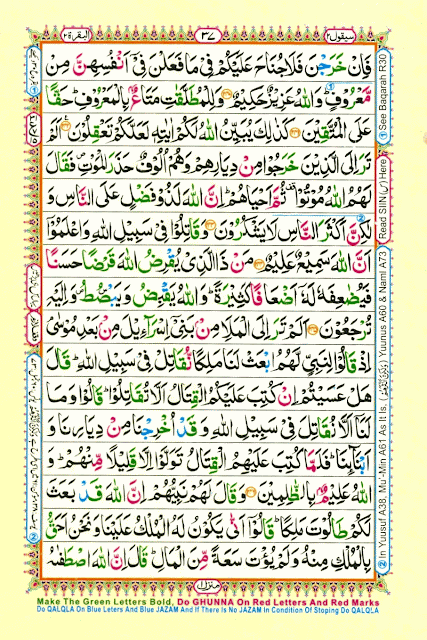 سيقول ٢
٣٧
البقرة ٢
فَاِنْ خَرَجْنَ فَلَا جُنَاحَ عَلَيْكُمْ فِيْ مَا فَعَلْنَ فِيْٓ اَنْفُسِهِنَّ مِنْ
مَّعْرُوْفٍ ؕ وَاللّٰهُ عَزِيْزٌ حَكِيْمٌ ۝ وَلِلْمُطَلَّقٰتِ مَتَاعٌۢ بِالْمَعْرُوْفِ ؕ حَقًّا
عَلَى الْمُتَّقِيْنَ ۝ كَذٰلِكَ يُبَيِّنُ اللّٰهُ لَكُمْ اٰيٰتِهٖ لَعَلَّكُمْ تَعْقِلُوْنَ ۝ اَلَمْ
تَرَ اِلَى الَّذِيْنَ خَرَجُوْا مِنْ دِيَارِهِمْ وَهُمْ اُلُوْفٌ حَذَرَ الْمَوْتِ ۪ فَقَالَ
لَهُمُ اللّٰهُ مُوْتُوْا ۫ ثُمَّ اَحْيَاهُمْ ؕ اِنَّ اللّٰهَ لَذُوْ فَضْلٍ عَلَى النَّاسِ وَ
لٰكِنَّ اَكْثَرَ النَّاسِ لَا يَشْكُرُوْنَ ۝ وَقَاتِلُوْا فِيْ سَبِيْلِ اللّٰهِ وَاعْلَمُوْٓا
اَنَّ اللّٰهَ سَمِيْعٌ عَلِيْمٌ ۝ مَنْ ذَا الَّذِيْ يُقْرِضُ اللّٰهَ قَرْضًا حَسَنًا
فَيُضٰعِفَهٗ لَهٗٓ اَضْعَافًا كَثِيْرَةً ؕ وَاللّٰهُ يَقْبِضُ وَيَبْصُۜطُ ۪ وَاِلَيْهِ
تُرْجَعُوْنَ ۝ اَلَمْ تَرَ اِلَى الْمَلَاِ مِنْۢ بَنِيْٓ اِسْرَآءِيْلَ مِنْۢ بَعْدِ مُوْسٰى ۘ
اِذْ قَالُوْا لِنَبِيٍّ لَّهُمُ ابْعَثْ لَنَا مَلِكًا نُّقَاتِلْ فِيْ سَبِيْلِ اللّٰهِ ؕ قَالَ
هَلْ عَسَيْتُمْ اِنْ كُتِبَ عَلَيْكُمُ الْقِتَالُ اَلَّا تُقَاتِلُوْا ؕ قَالُوْا وَمَا
لَنَآ اَلَّا نُقَاتِلَ فِيْ سَبِيْلِ اللّٰهِ وَقَدْ اُخْرِجْنَا مِنْ دِيَارِنَا وَ
اَبْنَآىِٕنَا ؕ فَلَمَّا كُتِبَ عَلَيْهِمُ الْقِتَالُ تَوَلَّوْا اِلَّا قَلِيْلًا مِّنْهُمْ ؕ وَ
اللّٰهُ عَلِيْمٌۢ بِالظّٰلِمِيْنَ ۝ وَقَالَ لَهُمْ نَبِيُّهُمْ اِنَّ اللّٰهَ قَدْ بَعَثَ
لَكُمْ طَالُوْتَ مَلِكًا ؕ قَالُوْٓا اَنّٰى يَكُوْنُ لَهُ الْمُلْكُ عَلَيْنَا وَنَحْنُ اَحَقُّ
بِالْمُلْكِ مِنْهُ وَلَمْ يُؤْتَ سَعَةً مِّنَ الْمَالِ ؕ قَالَ اِنَّ اللّٰهَ اصْطَفٰىهُ
منزل ١
① See Baqarah R30
Read SIIN (س) Here
② In Yuusuf A38, Mu'-Min A61 As It Is, Yuunus A60 & Naml A73
Make The Green Letters Bold, Do GHUNNA On Red Letters And Red Marks
Do QALQLA On Blue Leters And Blue JAZAM And If There Is No JAZAM In Condition Of Stoping Do QALQLA